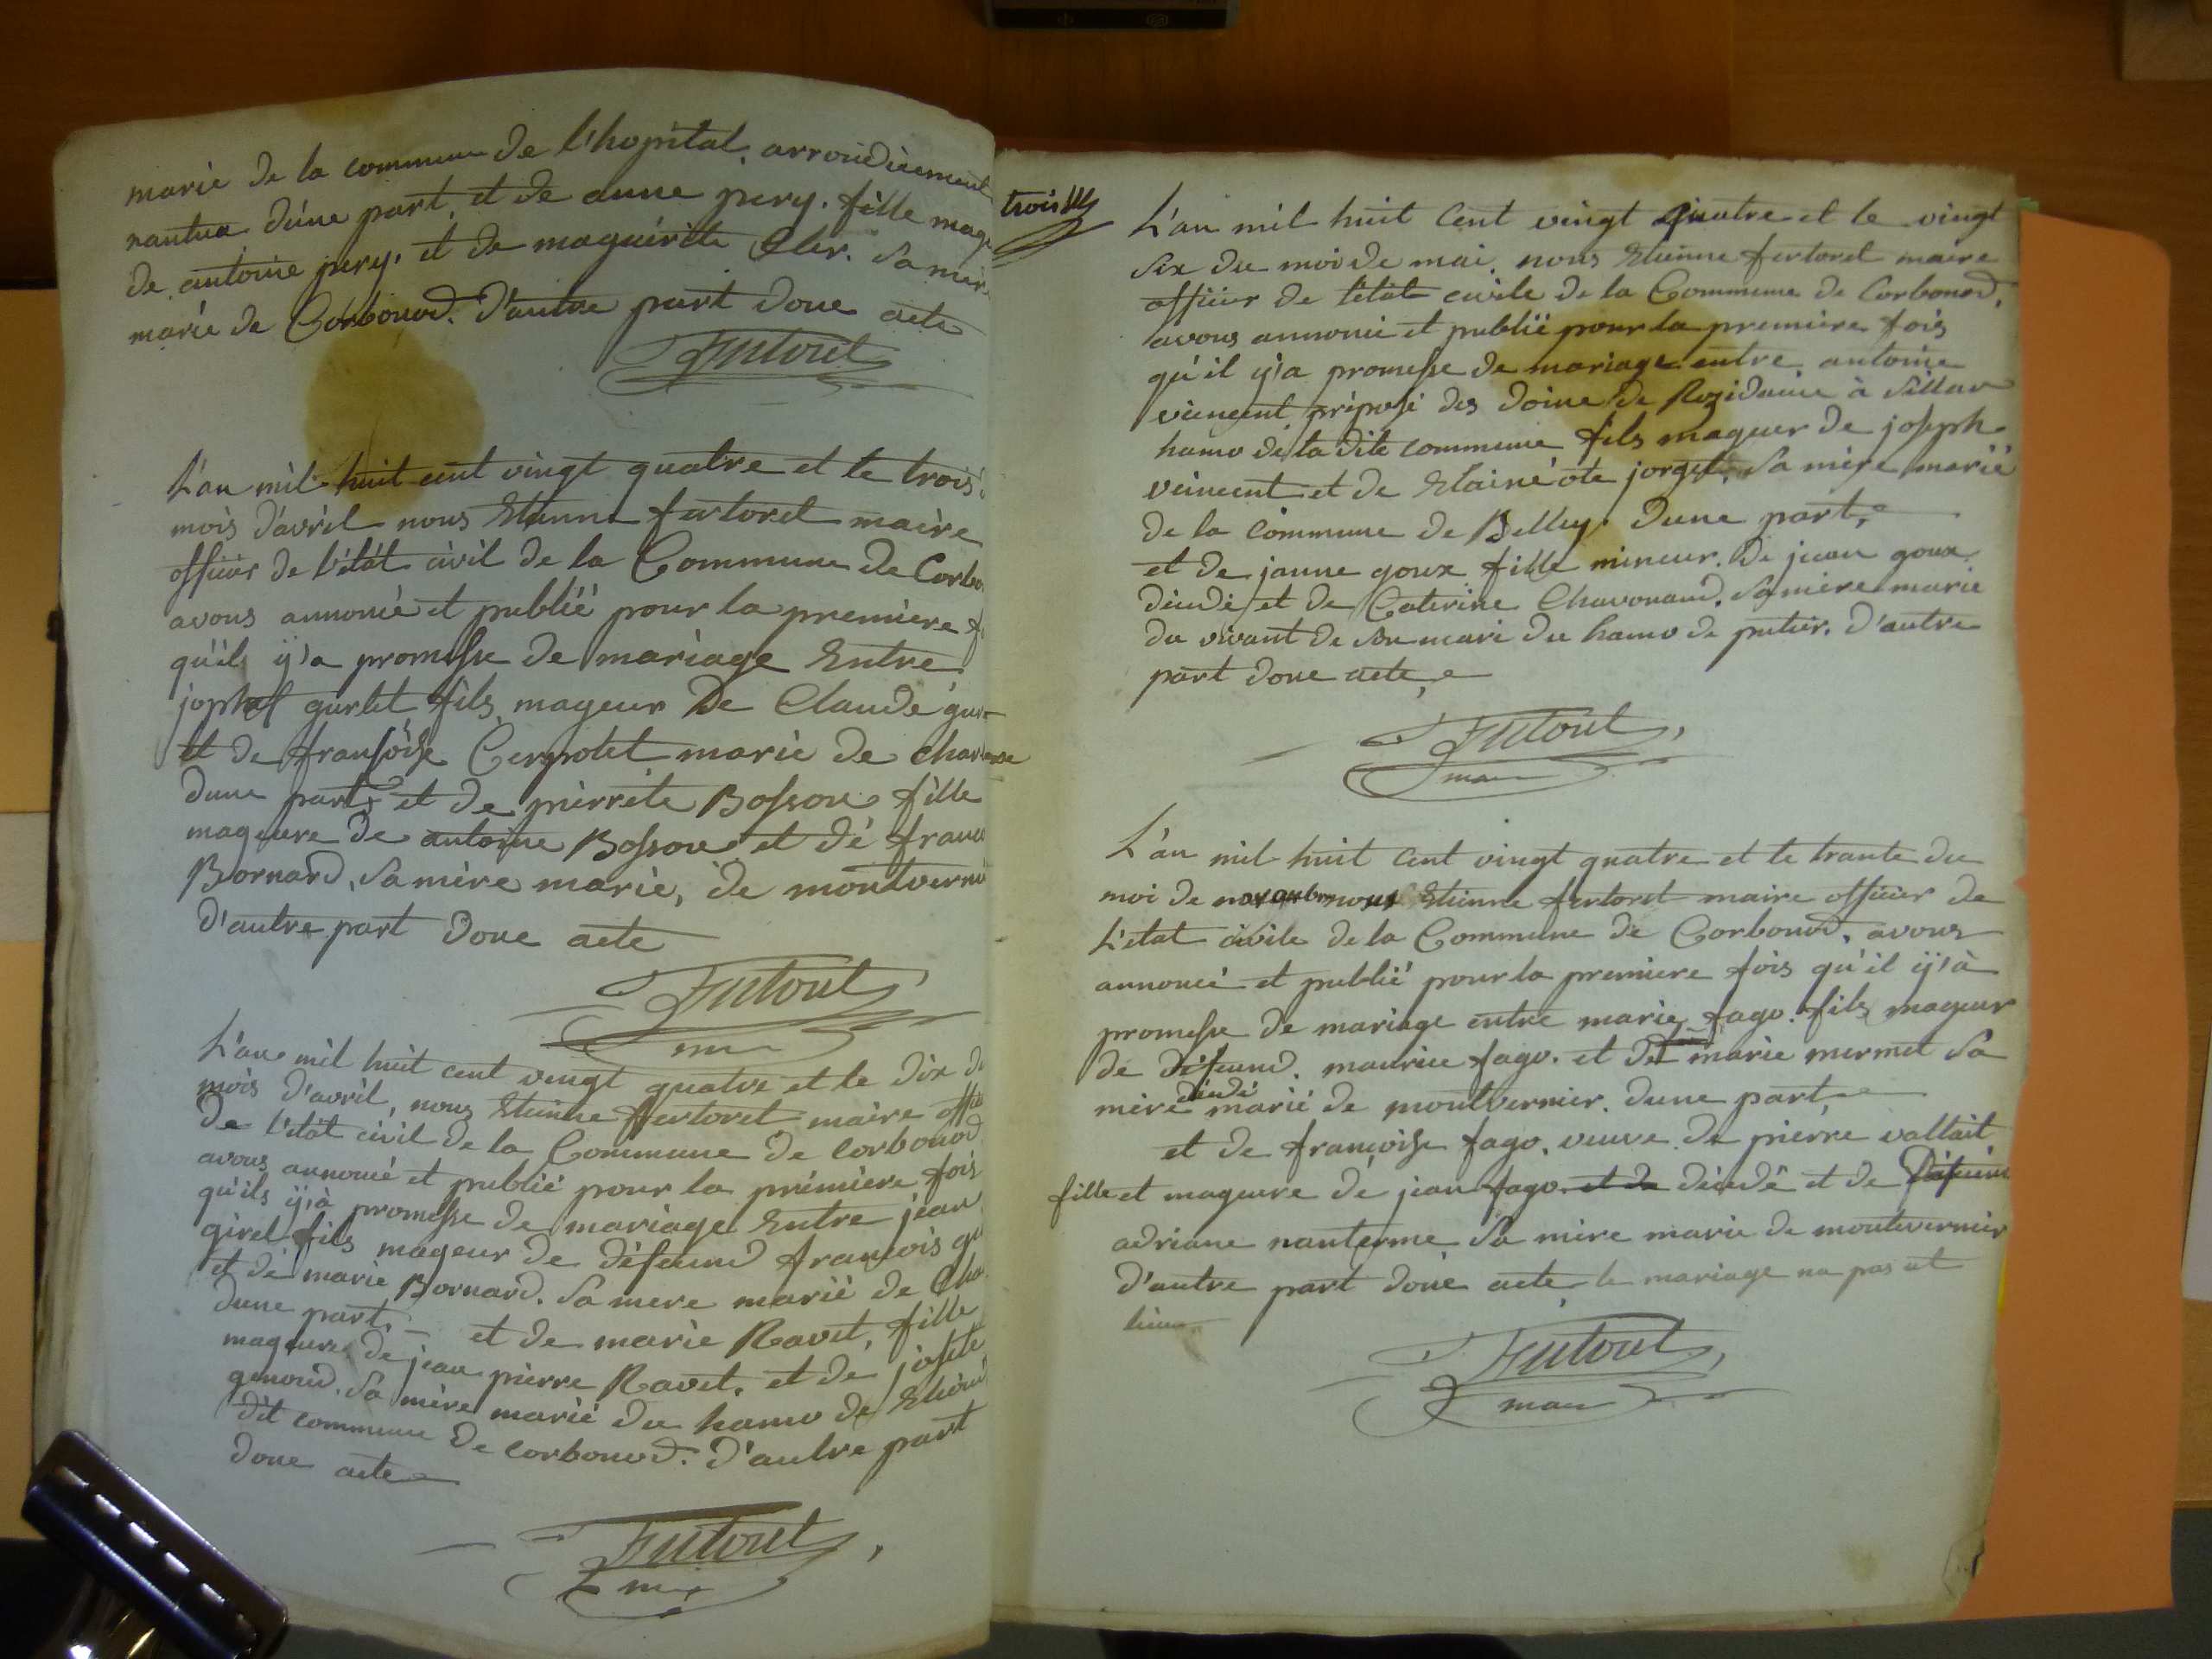 marie de la commune de l'hopital, arroudicement
nantua d'une part, et de anne pery. fille mag
de antoine pery. et de maguérite Cler. Sa mer
marie de Corbonod. D'autre part Done acte
Fertoret
L'an mil huit cent vingt quatre et le trois
mois d'avril nous Etienne fertoret maire
officier de l'état civil de la Commune de Corbo
avous annoncé et publié pour la premiere f
qu'il y'a promesse de mariage Entre
joph gurlet fils mageur De Claude gur
et de fransoise Cerpotet marie de
dune part, et de pierrete Bosson fille
mageure de antoine Bosson et dé franc
Bornard, Sa mère marie, de montverni
D'autre part Done acte
Fertoret
L'an mil huit cent vingt quatre et le Dix d
mois D'avril, nous Etienne fertoret maire offi
De l'état civil de la Commune de Corbonod
avous annoncé et publié pour la première fois
qu'ils y'à promesse de mariage Entre jean
girel fils mageur de Défeund françois gi
et dé marie Bornard. Sa mere marié de Cha
Dune part, et de marie Ravet, fille
mageure de jean pierre Ravet. et de josete
genoud. Sa mère marié du hamo de
Dit commune De Corbonod. D'autre part
Done acte
Fertoret
trois
L'an mil huit Cent vingt quatre et le vingt
Six du moi de mai. nous Etienne fertoret maire
officier de l'état civile de la Commune de Corbonod,
avous annoncé et publié pour la premiere fois
qu'il y'a promesse de mariage entre antoine
vincent préposé des doine de Rezidance à Sillan
hamo de la dite commune fils mageur de joseph
vincent et de jorget, Sa mère marié
de la Commune de Belley. Dune part,
et de janne goux fille mineur. De jean goux
décédé et de Caterine Chavonand. Sa mere marie
du vivant de son mari du hamo de putier. D'autre
part Done acte
Fertoret
maire
L'an mil huit Cent vingt quatre et le trante du
moi de nous Etienne fertoret maire officier de
L'etat civile de la Commune de Corbonod, avous
annoncé et publié pour la premiere fois qu'il y'à
promesse De mariage entre marie fago. fils mageur
de Défeund. maurice fago. et de marie mermet Sa
mère décédé marié de montvernier. Dune part
et de françoise fago. veuve de pierre valtait
fille et mageure dé jean fago et de décédé et de Défeund
adriane nanterme Sa mire marie de montevernier
D'autre part Done acte le mariage na pas ut
lieu
Fertoret
maire